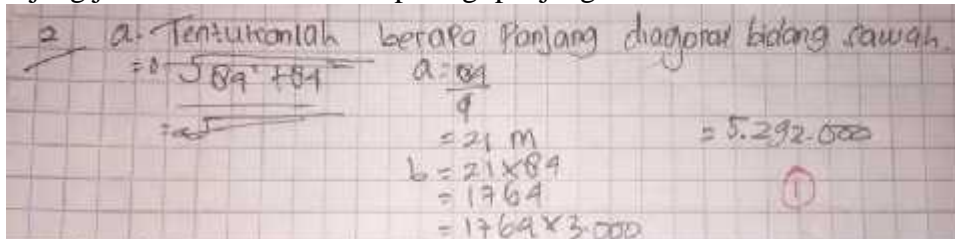 2 a. Tentukanlah berapa Panjang diagonal bidang sawah.
= √84² + 84²
= √
a = 84
4
= 21 m
b = 21 × 84
= 1764
= 1764 × 3.000
= 5.292.000
1